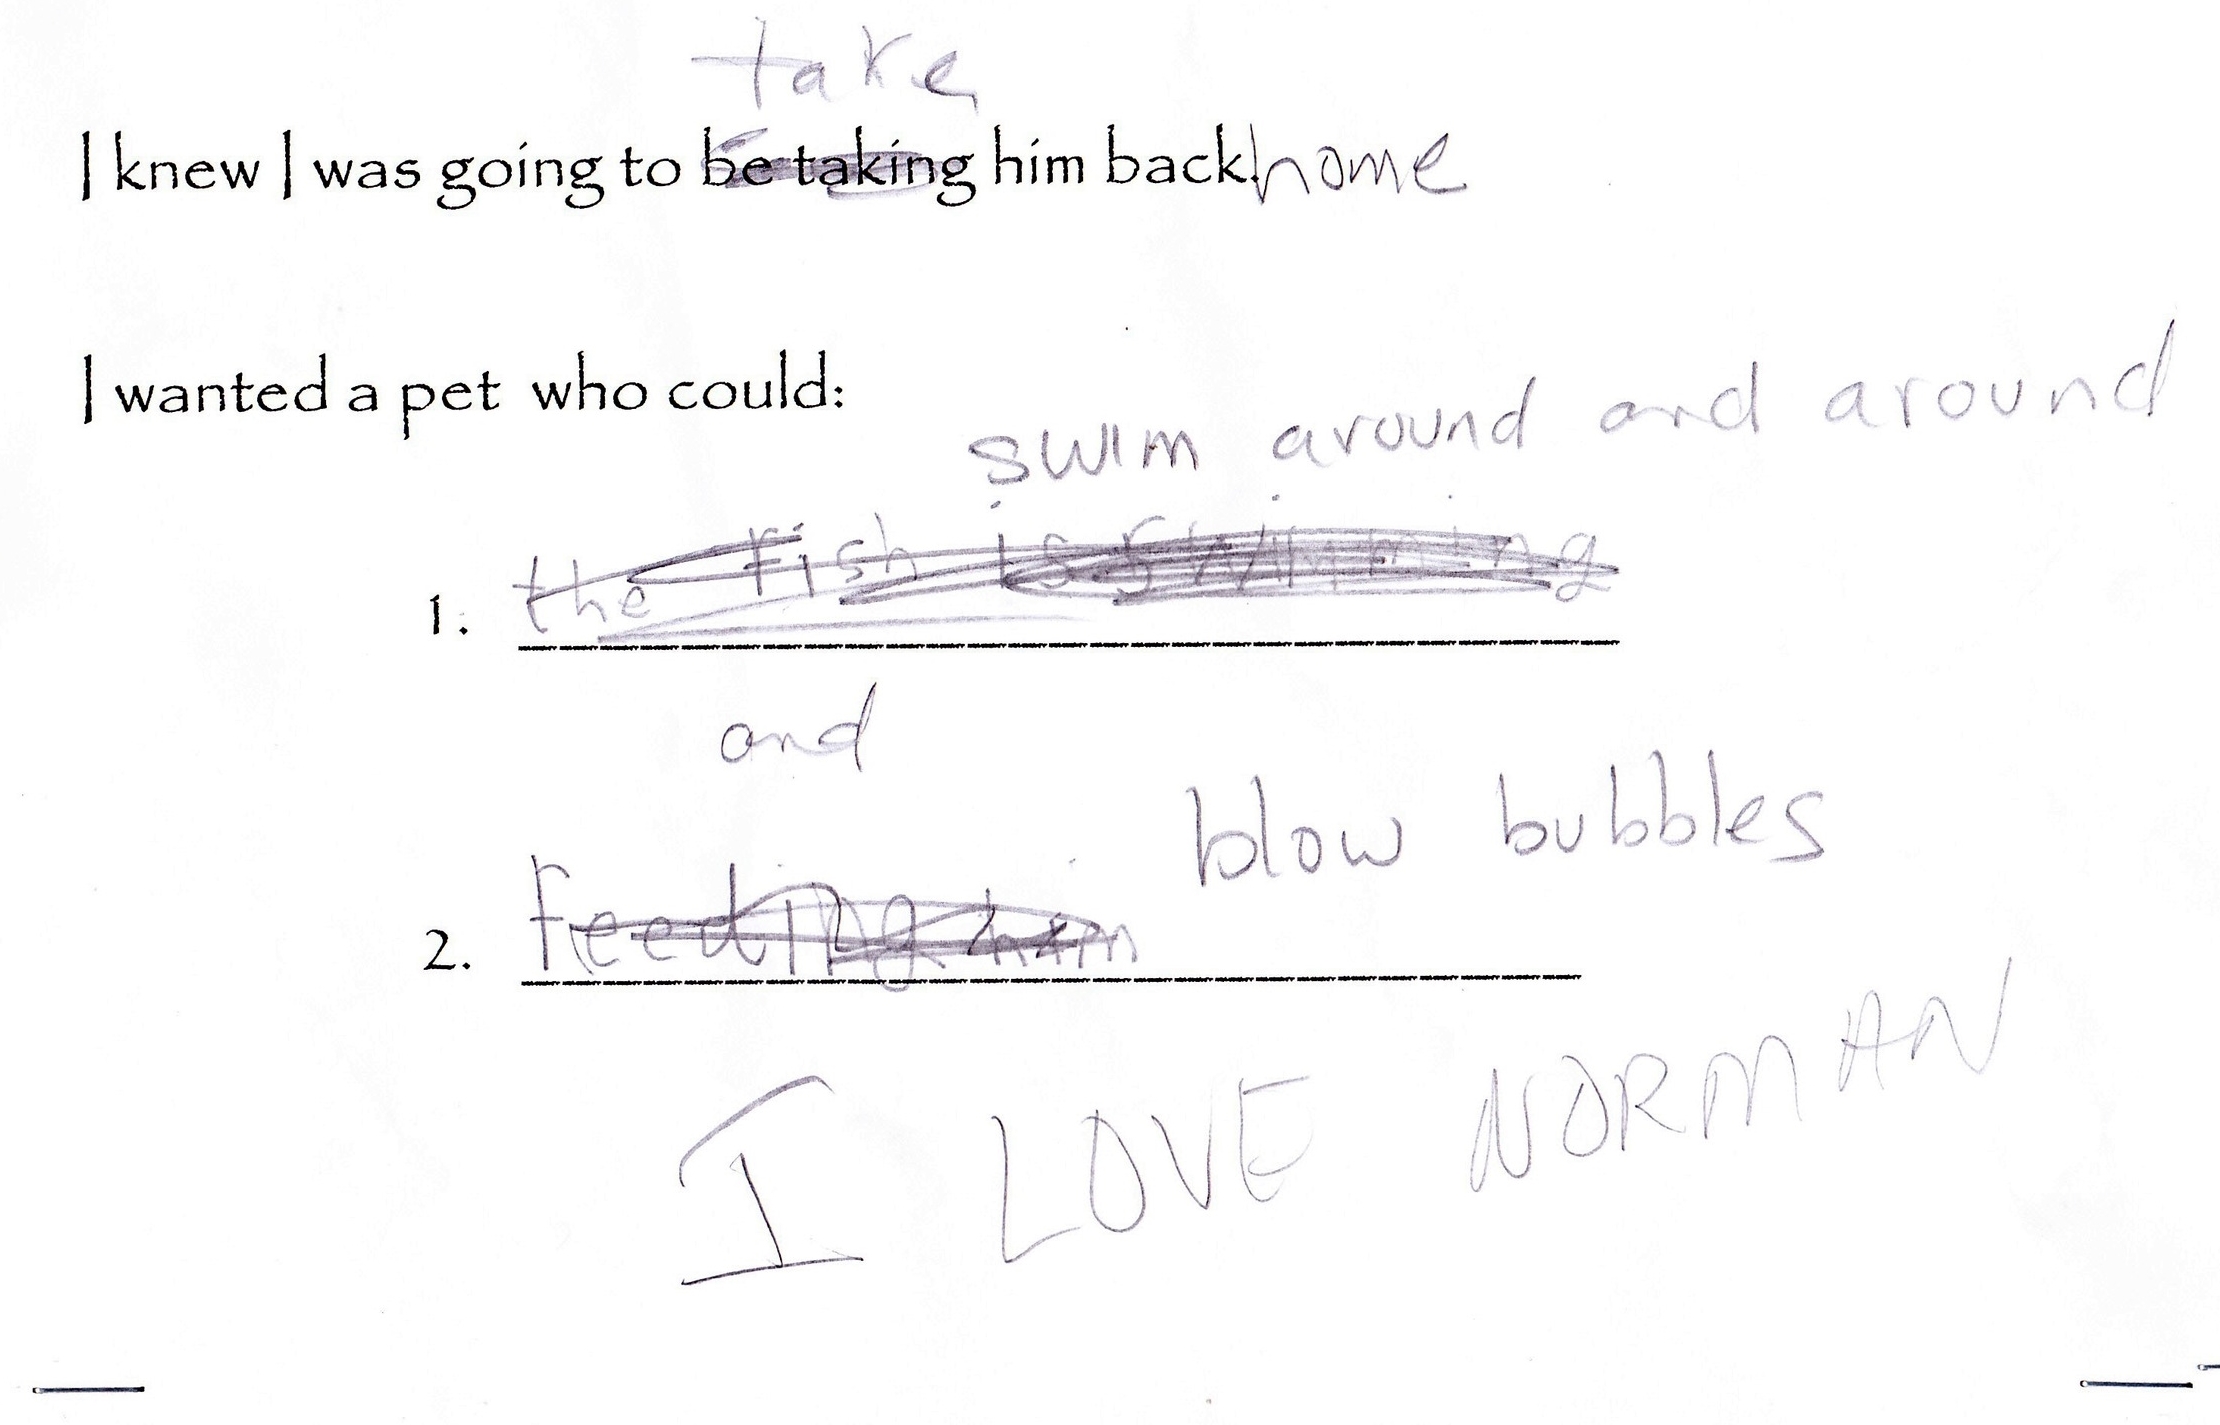 take
I knew I was going to be taking him back. home
I wanted a pet who could:
swim around and around
1. the fish is swimming
and
blow bubbles
2. Feeding him
I LOVE NORMAN